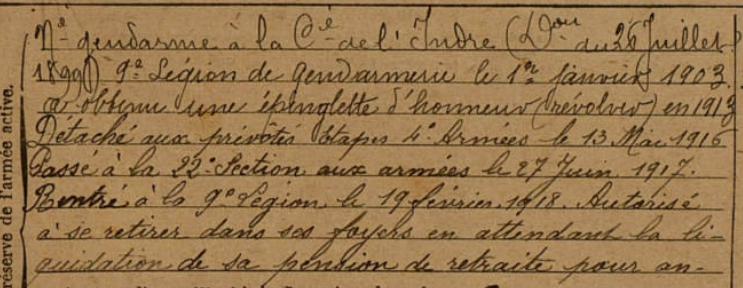 Né gendarme à la Cié de l'Indre (Don du 26 Juillet
1899) 9e Légion de Gendarmerie le 1er Janvier 1903.
a obtenu une épinglette d'honneur (révolver) en 1913
Détaché aux prévôtés Etapes 4e Armées le 13 Mai 1916
Passé à la 22e Section aux armées le 27 Juin 1917.
Rentré à la 9e Légion le 19 février 1918. Autorisé
à se retirer dans ses foyers en attendant la li-
quidation de sa pension de retraite pour an-
réserve de l'armée active.